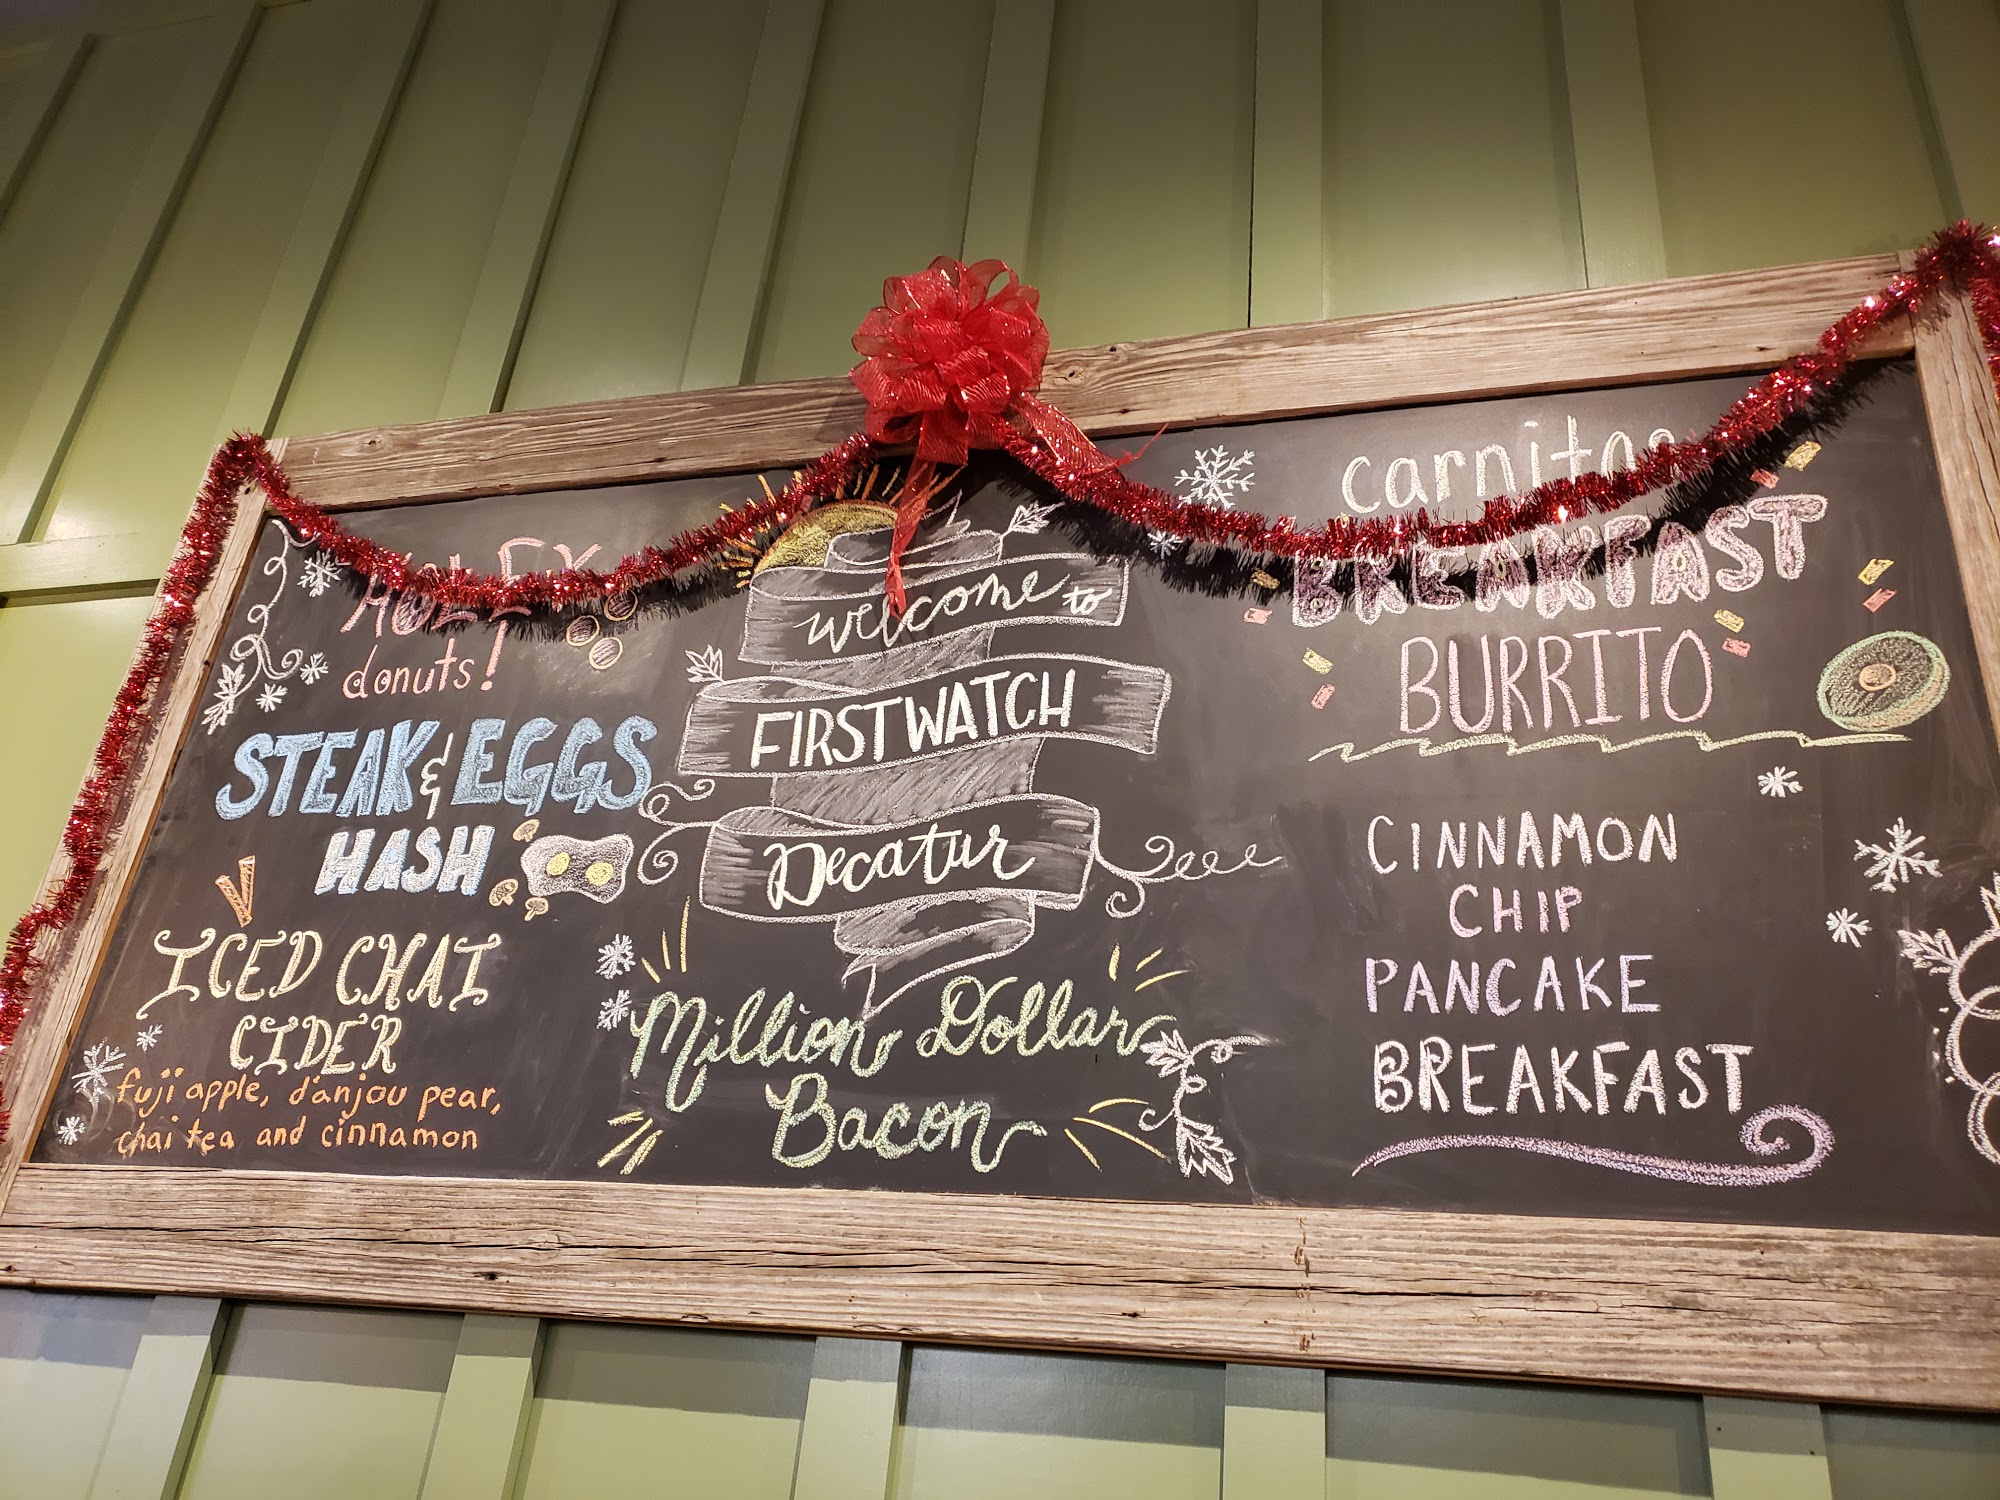 HOLEY
donuts!
STEAK & EGGS
HASH
ICED CHAI
CIDER
fuji apple, d'anjou pear,
chai tea and cinnamon
welcome to
FIRST WATCH
Decatur
Million Dollar
Bacon
carnitas
BREAKFAST
BURRITO
CINNAMON
CHIP
PANCAKE
BREAKFAST